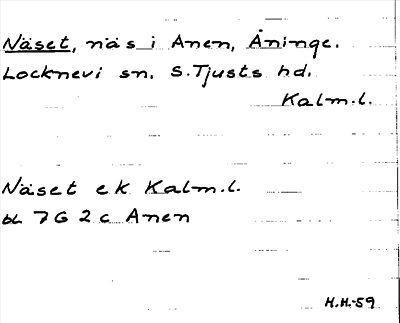 Näset, näs i Anen, Åninge.
Locknevi sn. S. Tjusts hd.
Kalm.l.
Näset ek Kalm.l.
bl 7G 2c Anen
H.H.-59